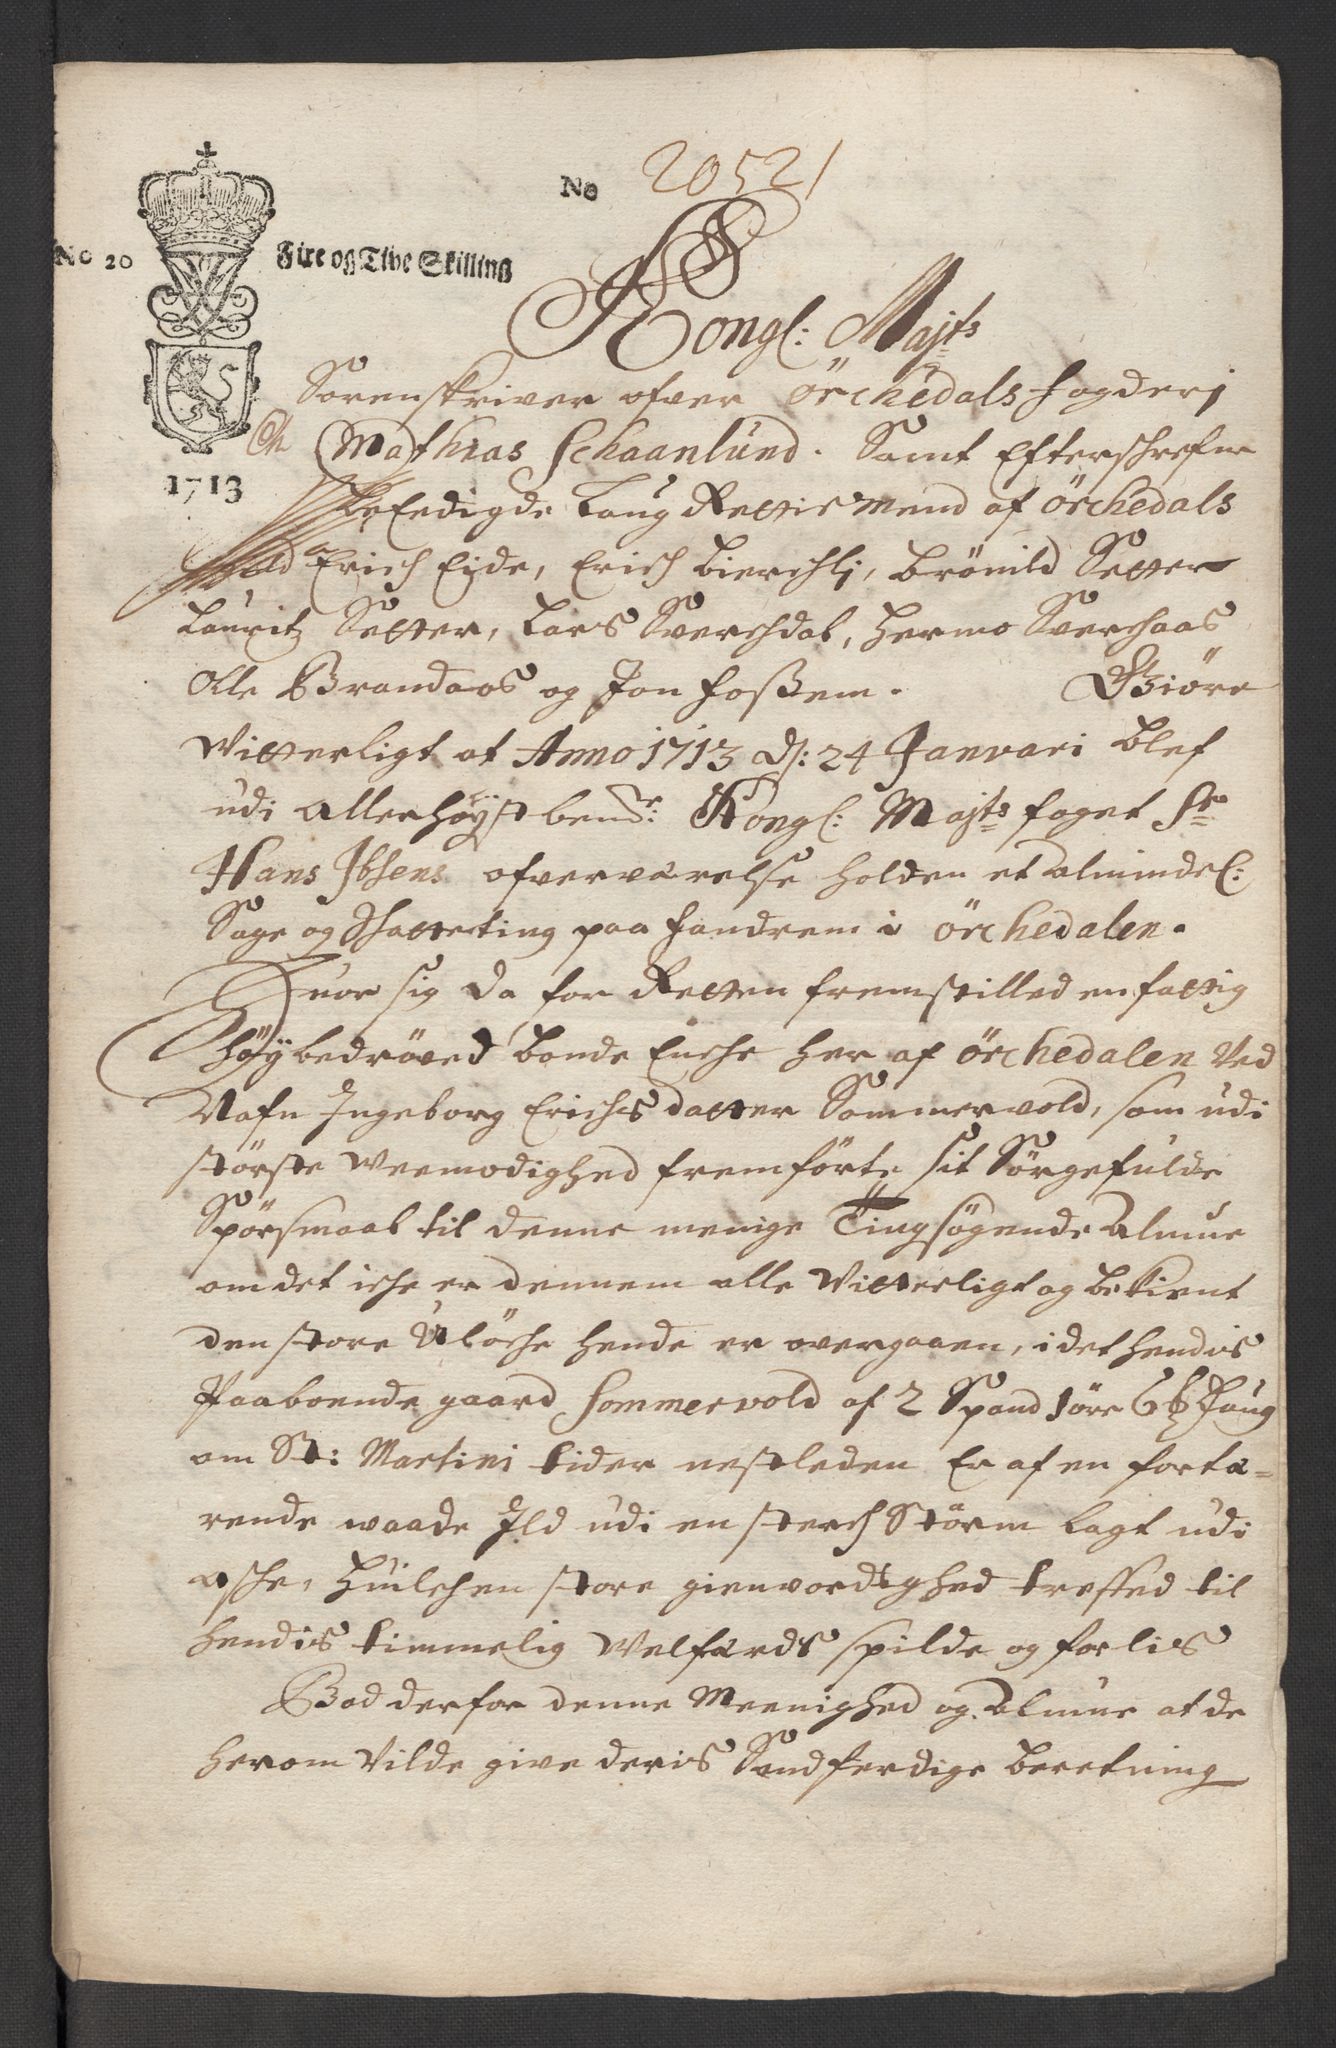 No 20521
No 20 Fire og Tive Skilling
1713
Kongl: Majts
Sorenskriver ofver Örchedals fogderj
Mathias Schaanlund. Samt Efterschrefne
Eedigde Laug Rettis Mend af Örchedals
Erich Eide, Erich Bierchlj, Brönild Setter
Lauritz Setter, Lars Sverchdal, Hermo Sverchaas
Olle Brandaas og Jon Foßem. Giöre
Vitterligt at Anno 1713 d: 24 Janvari blef
udi allerhöystbemte: Kongl: Majts foget Sr
Hans Ibsens ofverværelse holden et almindel:
Sage og Skatteting paa Fandrem i Örchedalen.
Huor sig da for Retten fremstilled en fattig
höybedröved bonde Enche her af Örchedalen Ved
Nafn Ingeborg Erichsdatter Sommervold, som udi
störste Veemodighed fremförte sit Sörgefulde
Spörsmaal til denne menige Tingsögende Almue
om det iche er dennem alle Vitterligt og bekient
den store Ulöche hende er overgaaen, i det hendis
Paaboende gaard Sommervold af 2 Spand 1 öre 6 Mk Laug
om St: Martini tider nestleden Er af en fortæ-
rende vaade Ild udi en sterch Storm lagt udi
asche, Huilchen store gienvordighed treffed til
hendis timmelig Velfærds spilde og forlis
Bad derfor denne Meenighed og Almue at de
herom Vilde give deris Sandferdige beretning